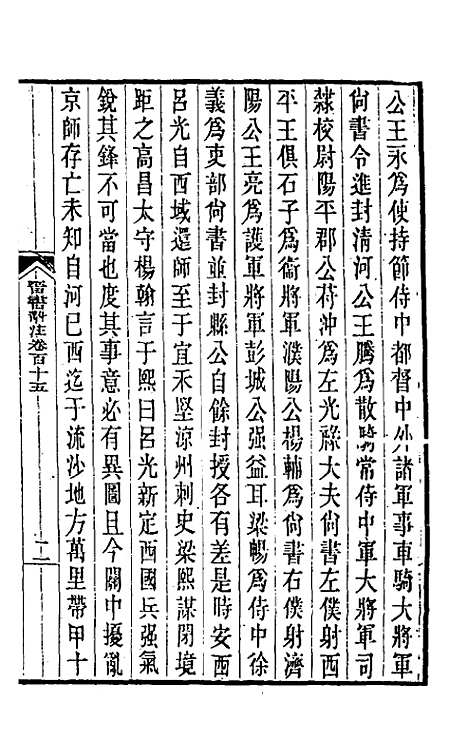 公王永爲使持節侍中都督中外諸軍事車騎大將軍
尚書令進封清河公王騰爲散騎常侍中軍大將軍司
隸校尉陽平郡公苻沖爲左光祿大夫尚書左僕射西
平王俱石子爲衞將軍濮陽公楊輔爲尚書右僕射濟
陽公王亮爲護軍將軍彭城公强益耳梁暢爲侍中徐
義爲吏部尚書並封縣公自餘封授各有差是時安西
呂光自西域還師至于宜禾堅涼州刺史梁熙謀閉境
距之高昌太守楊翰言于熙曰呂光新定西國兵强氣
銳其鋒不可當也度其事意必有異圖且今關中擾亂
京師存亡未知自河已西迄于流沙地方萬里帶甲十
晉書斠注卷百十五